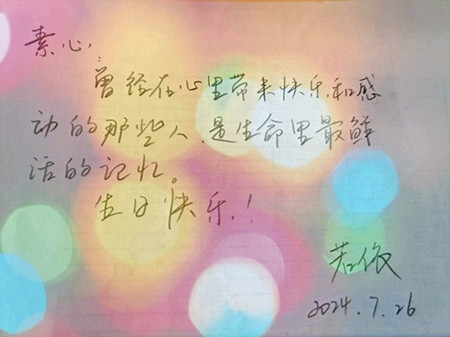 素心：
曾经在心里带来快乐和感
动的那些人，是生命里最鲜
活的记忆。
生日快乐！
若依
2024.7.26